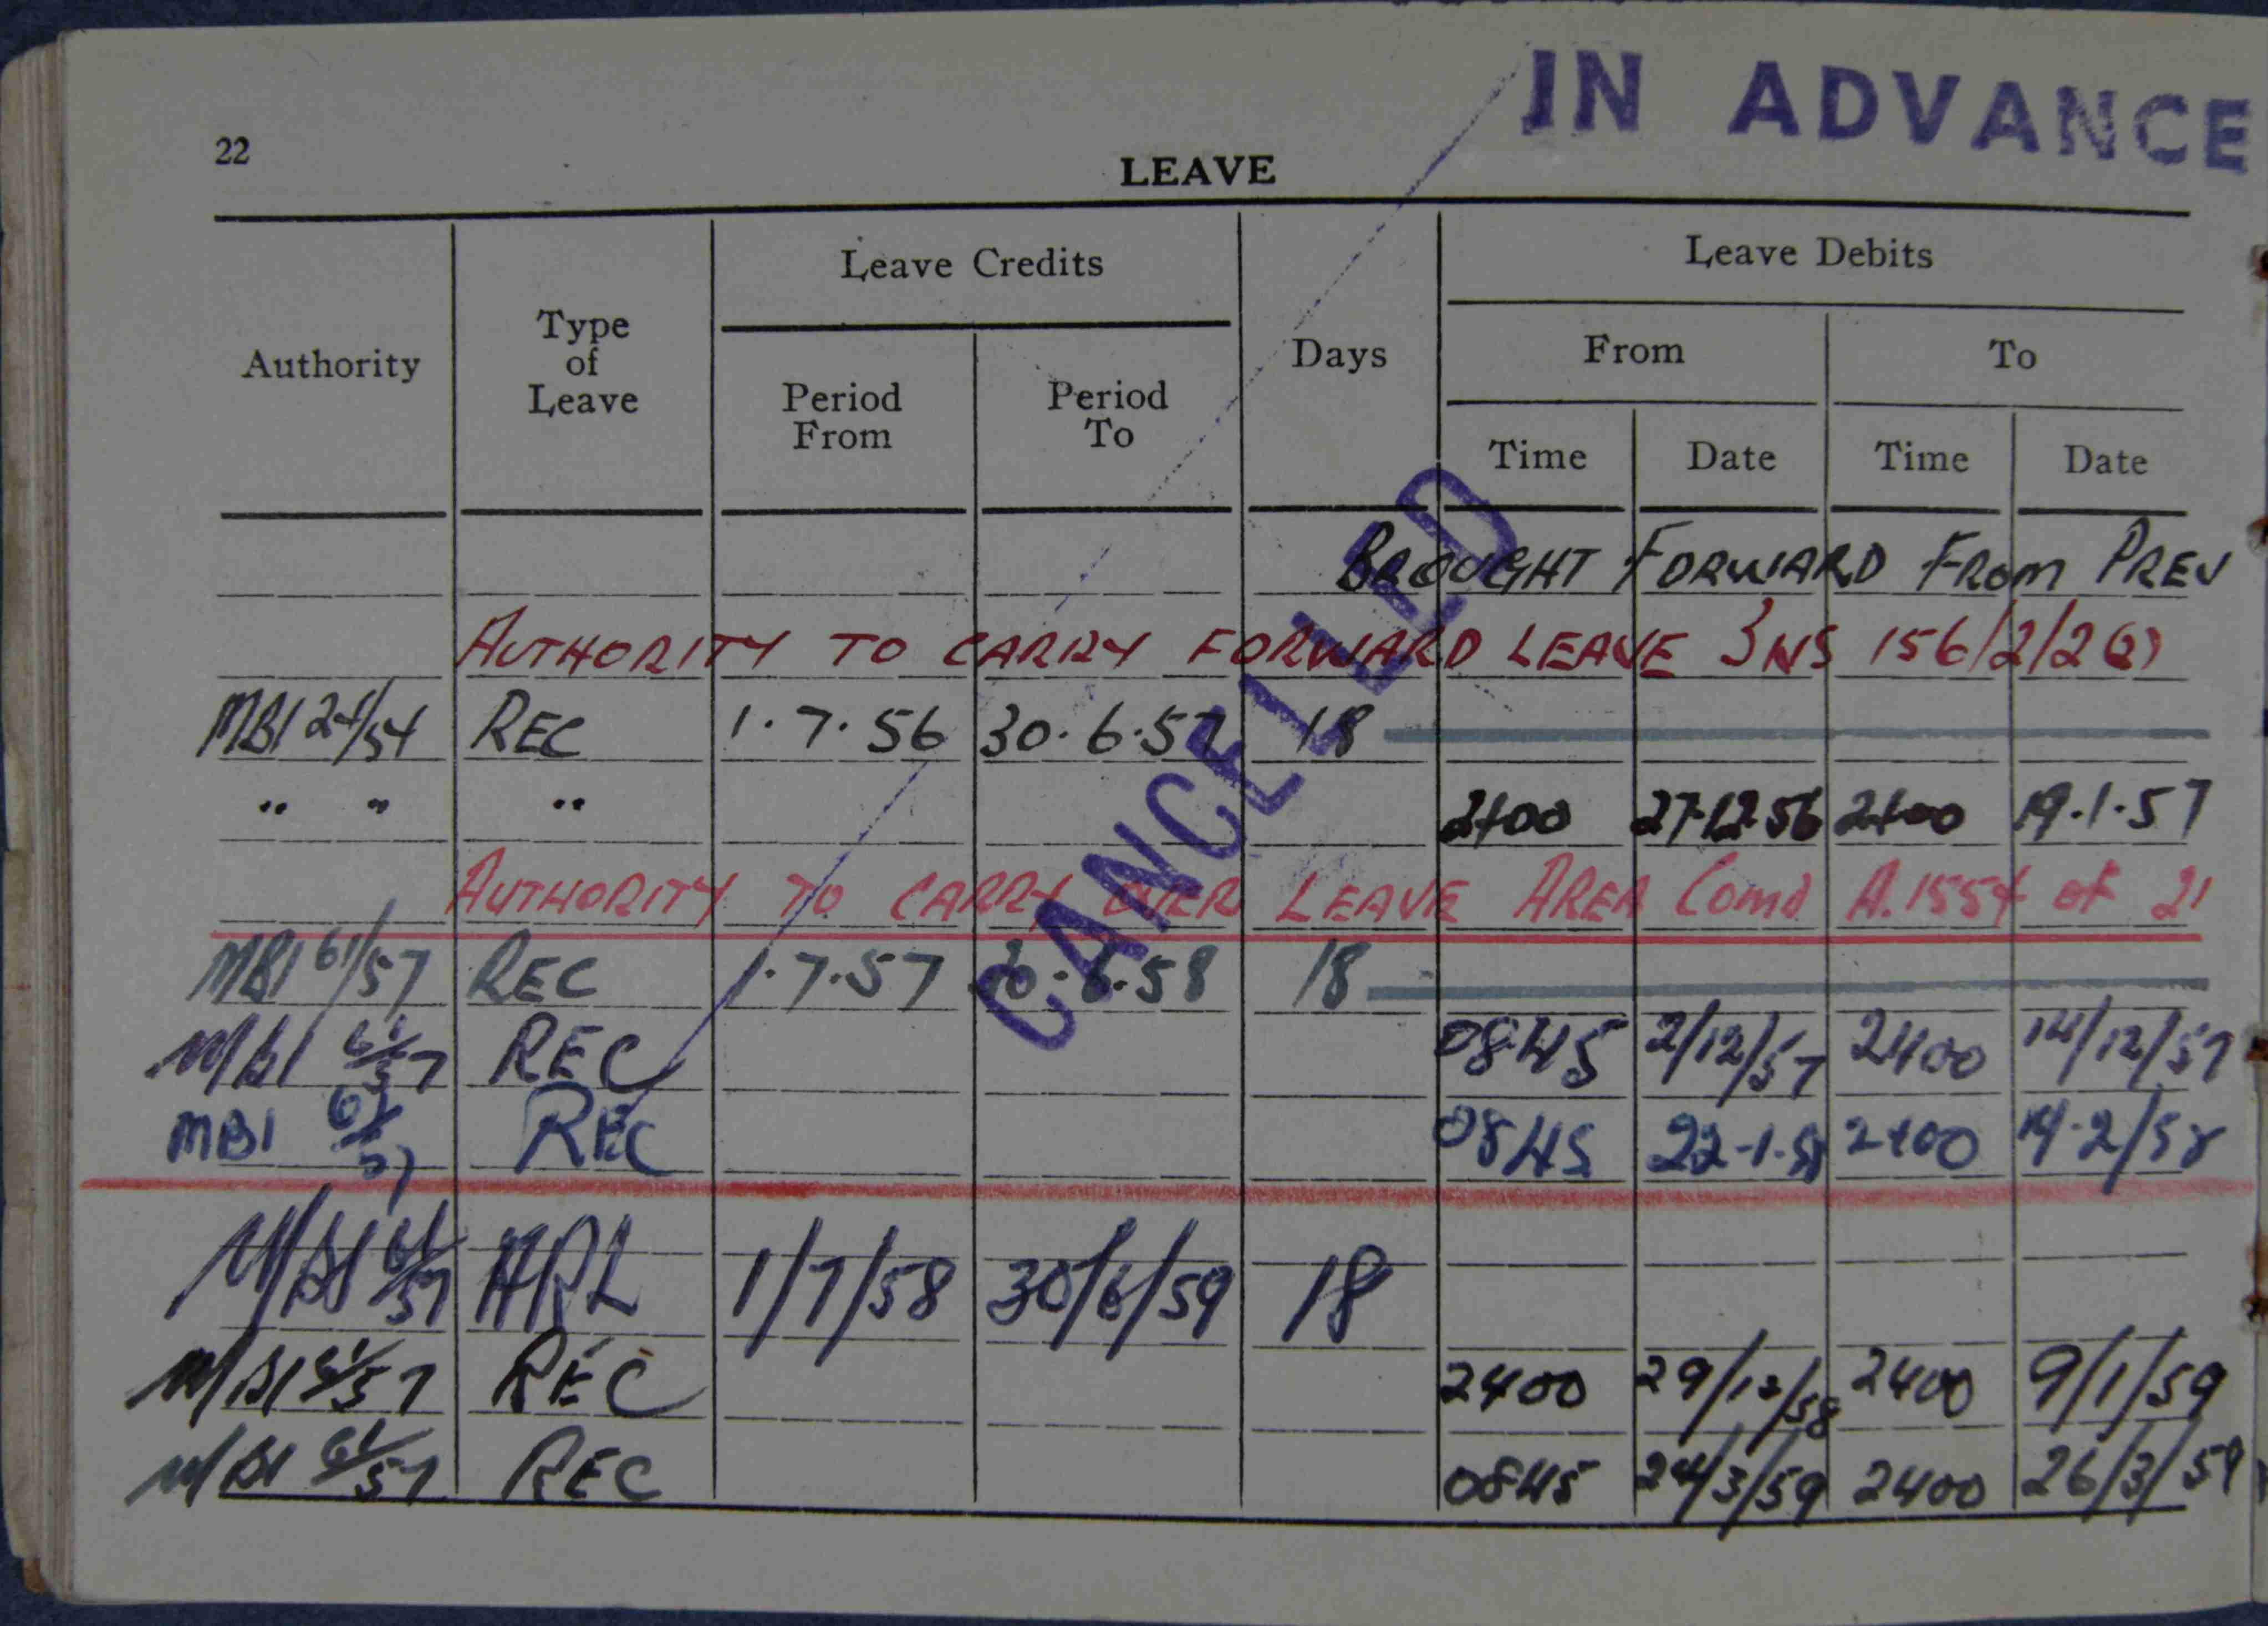 IN ADVANCE
22
LEAVE
Authority Type of Leave Leave Credits Days Leave Debits
From To
Period From Period To Time Date Time Date
BROUGHT FORWARD FROM PREV
AUTHORITY TO CARRY FORWARD LEAVE 156/2/2
MBI 24/54 REC 1.7.56 30.6.57 18
" " " 2400 27.12.56 2400 19.1.57
AUTHORITY TO CARRY OVER LEAVE AREA Comd A.1554 of 21
MBI 61/57 REC 1.7.57 30.6.58 18
M/BI 61/57 REC 0845 2/12/57 2400 14/12/57
MBI 61/57 REC 0845 22.1.58 2400 19.2/58
M/BI 61/57 ARL 1/7/58 30/6/59 18
M/BI 61/57 REC 2400 29/12/58 2400 9/1/59
M/BI 61/57 REC 0845 24/3/59 2400 26/3/59
CANCELLED